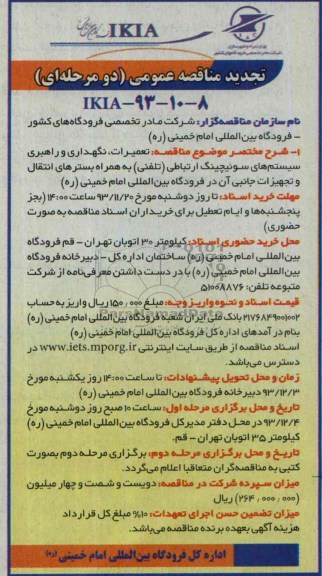 IKIA
وزارت راه و شهرسازی
شرکت مادر تخصصی فرودگاه‌های کشور
تجدید مناقصه عمومی (دو مرحله‌ای)
IKIA-۹۳-۱۰-۸
نام سازمان مناقصه‌گزار: شرکت مادر تخصصی فرودگاه‌های کشور
- فرودگاه بین‌المللی امام خمینی (ره)
۱- شرح مختصر موضوع مناقصه: تعمیرات، نگهداری و راهبری
سیستم‌های سوئیچینگ ارتباطی (تلفنی) به همراه بسترهای انتقال
و تجهیزات جانبی آن در فرودگاه بین‌المللی امام خمینی (ره)
مهلت خرید اسناد: تا روز دوشنبه مورخ ۹۳/۱۱/۲۰ ساعت ۱۴:۰۰ (بجز
پنجشنبه‌ها و ایام تعطیل برای خریداران اسناد مناقصه به صورت
حضوری)
محل خرید حضوری اسناد: کیلومتر ۳۰ اتوبان تهران - قم فرودگاه
بین‌المللی امام خمینی (ره) ساختمان اداره کل - دبیرخانه فرودگاه
بین‌المللی امام خمینی (ره) با در دست داشتن معرفی‌نامه از شرکت
متبوعه تلفن: ۵۱۰۰۸۸۷۶
قیمت اسناد و نحوه واریز وجه: مبلغ ۱۵۰٫۰۰۰ ریال واریز به حساب
۲۱۷۶۸۴۹۰۰۱۰۰۲ بانک ملی ایران شعبه فرودگاه بین‌المللی امام خمینی (ره)
بنام درآمدهای اداره کل فرودگاه بین‌المللی امام خمینی (ره)
اسناد مناقصه از طریق سایت اینترنتی www.iets.mporg.ir در
دسترس می‌باشد.
زمان و محل تحویل پیشنهادات: تا ساعت ۱۴:۰۰ روز یکشنبه مورخ
۹۳/۱۲/۳ دبیرخانه فرودگاه بین‌المللی امام خمینی (ره)
تاریخ و محل برگزاری مرحله اول: ساعت ۱۰ صبح روز دوشنبه مورخ
۹۳/۱۲/۴ در محل دفتر مدیرکل فرودگاه بین‌المللی امام خمینی (ره)
کیلومتر ۳۵ اتوبان تهران - قم.
تاریخ و محل برگزاری مرحله دوم: برگزاری مرحله دوم بصورت
کتبی به مناقصه‌گران متعاقبا اعلام می‌گردد.
میزان سپرده شرکت در مناقصه: دویست و شصت و چهار میلیون
(۲۶۴٫۰۰۰٫۰۰۰) ریال
میزان تضمین حسن اجرای تعهدات: ۱۰٪ مبلغ کل قرارداد
هزینه آگهی بعهده برنده مناقصه می‌باشد.
اداره کل فرودگاه بین‌المللی امام خمینی (ره)